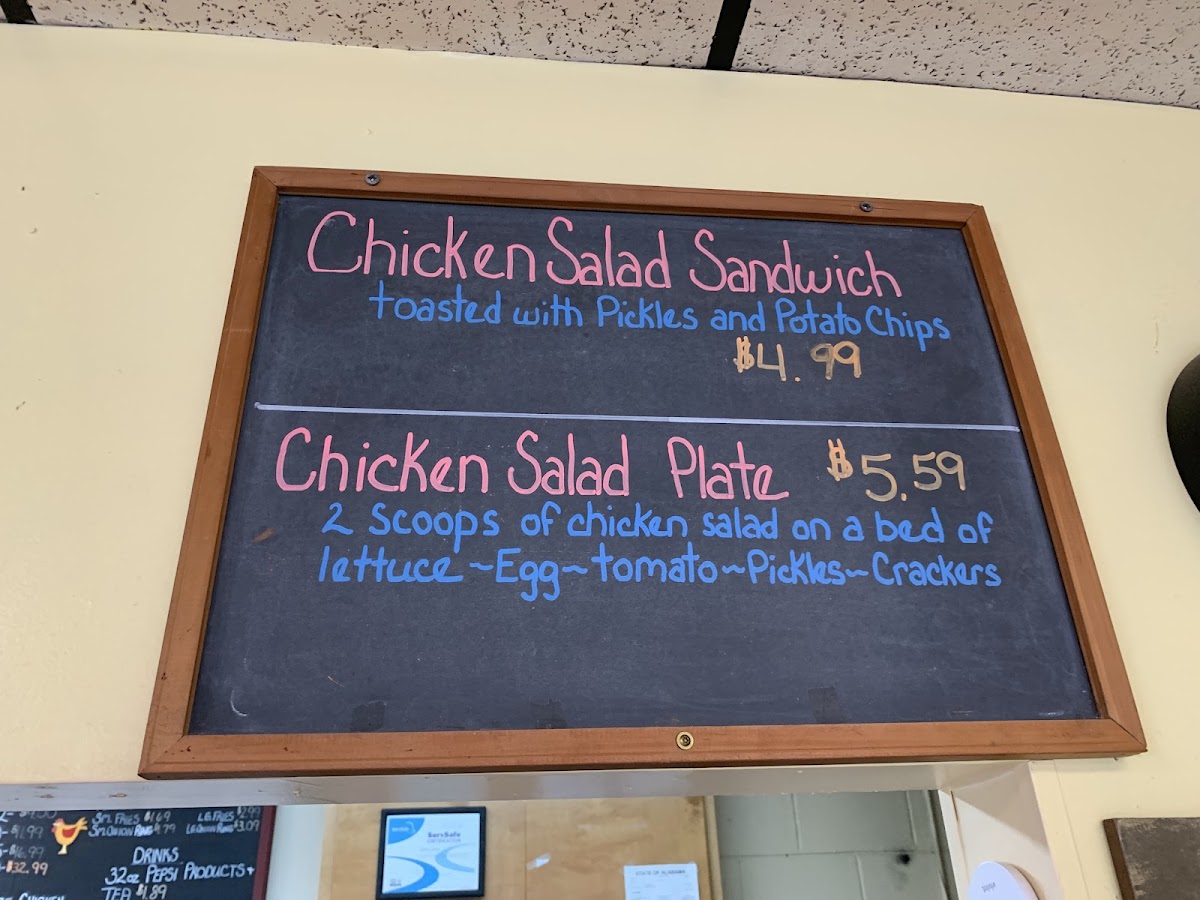 Chicken Salad Sandwich
toasted with Pickles and Potato Chips
$4.99
Chicken Salad Plate $5.59
2 scoops of chicken salad on a bed of
lettuce ~ Egg ~ tomato ~ Pickles ~ Crackers
SM. FRIES $1.69 LG. FRIES $2.99
SM. ONION RING $1.79 LG. ONION RING $3.09
$32.99
DRINKS
32oz PEPSI PRODUCTS +
TEA $1.89
CHICKEN
ServSafe
STATE OF ALABAMA